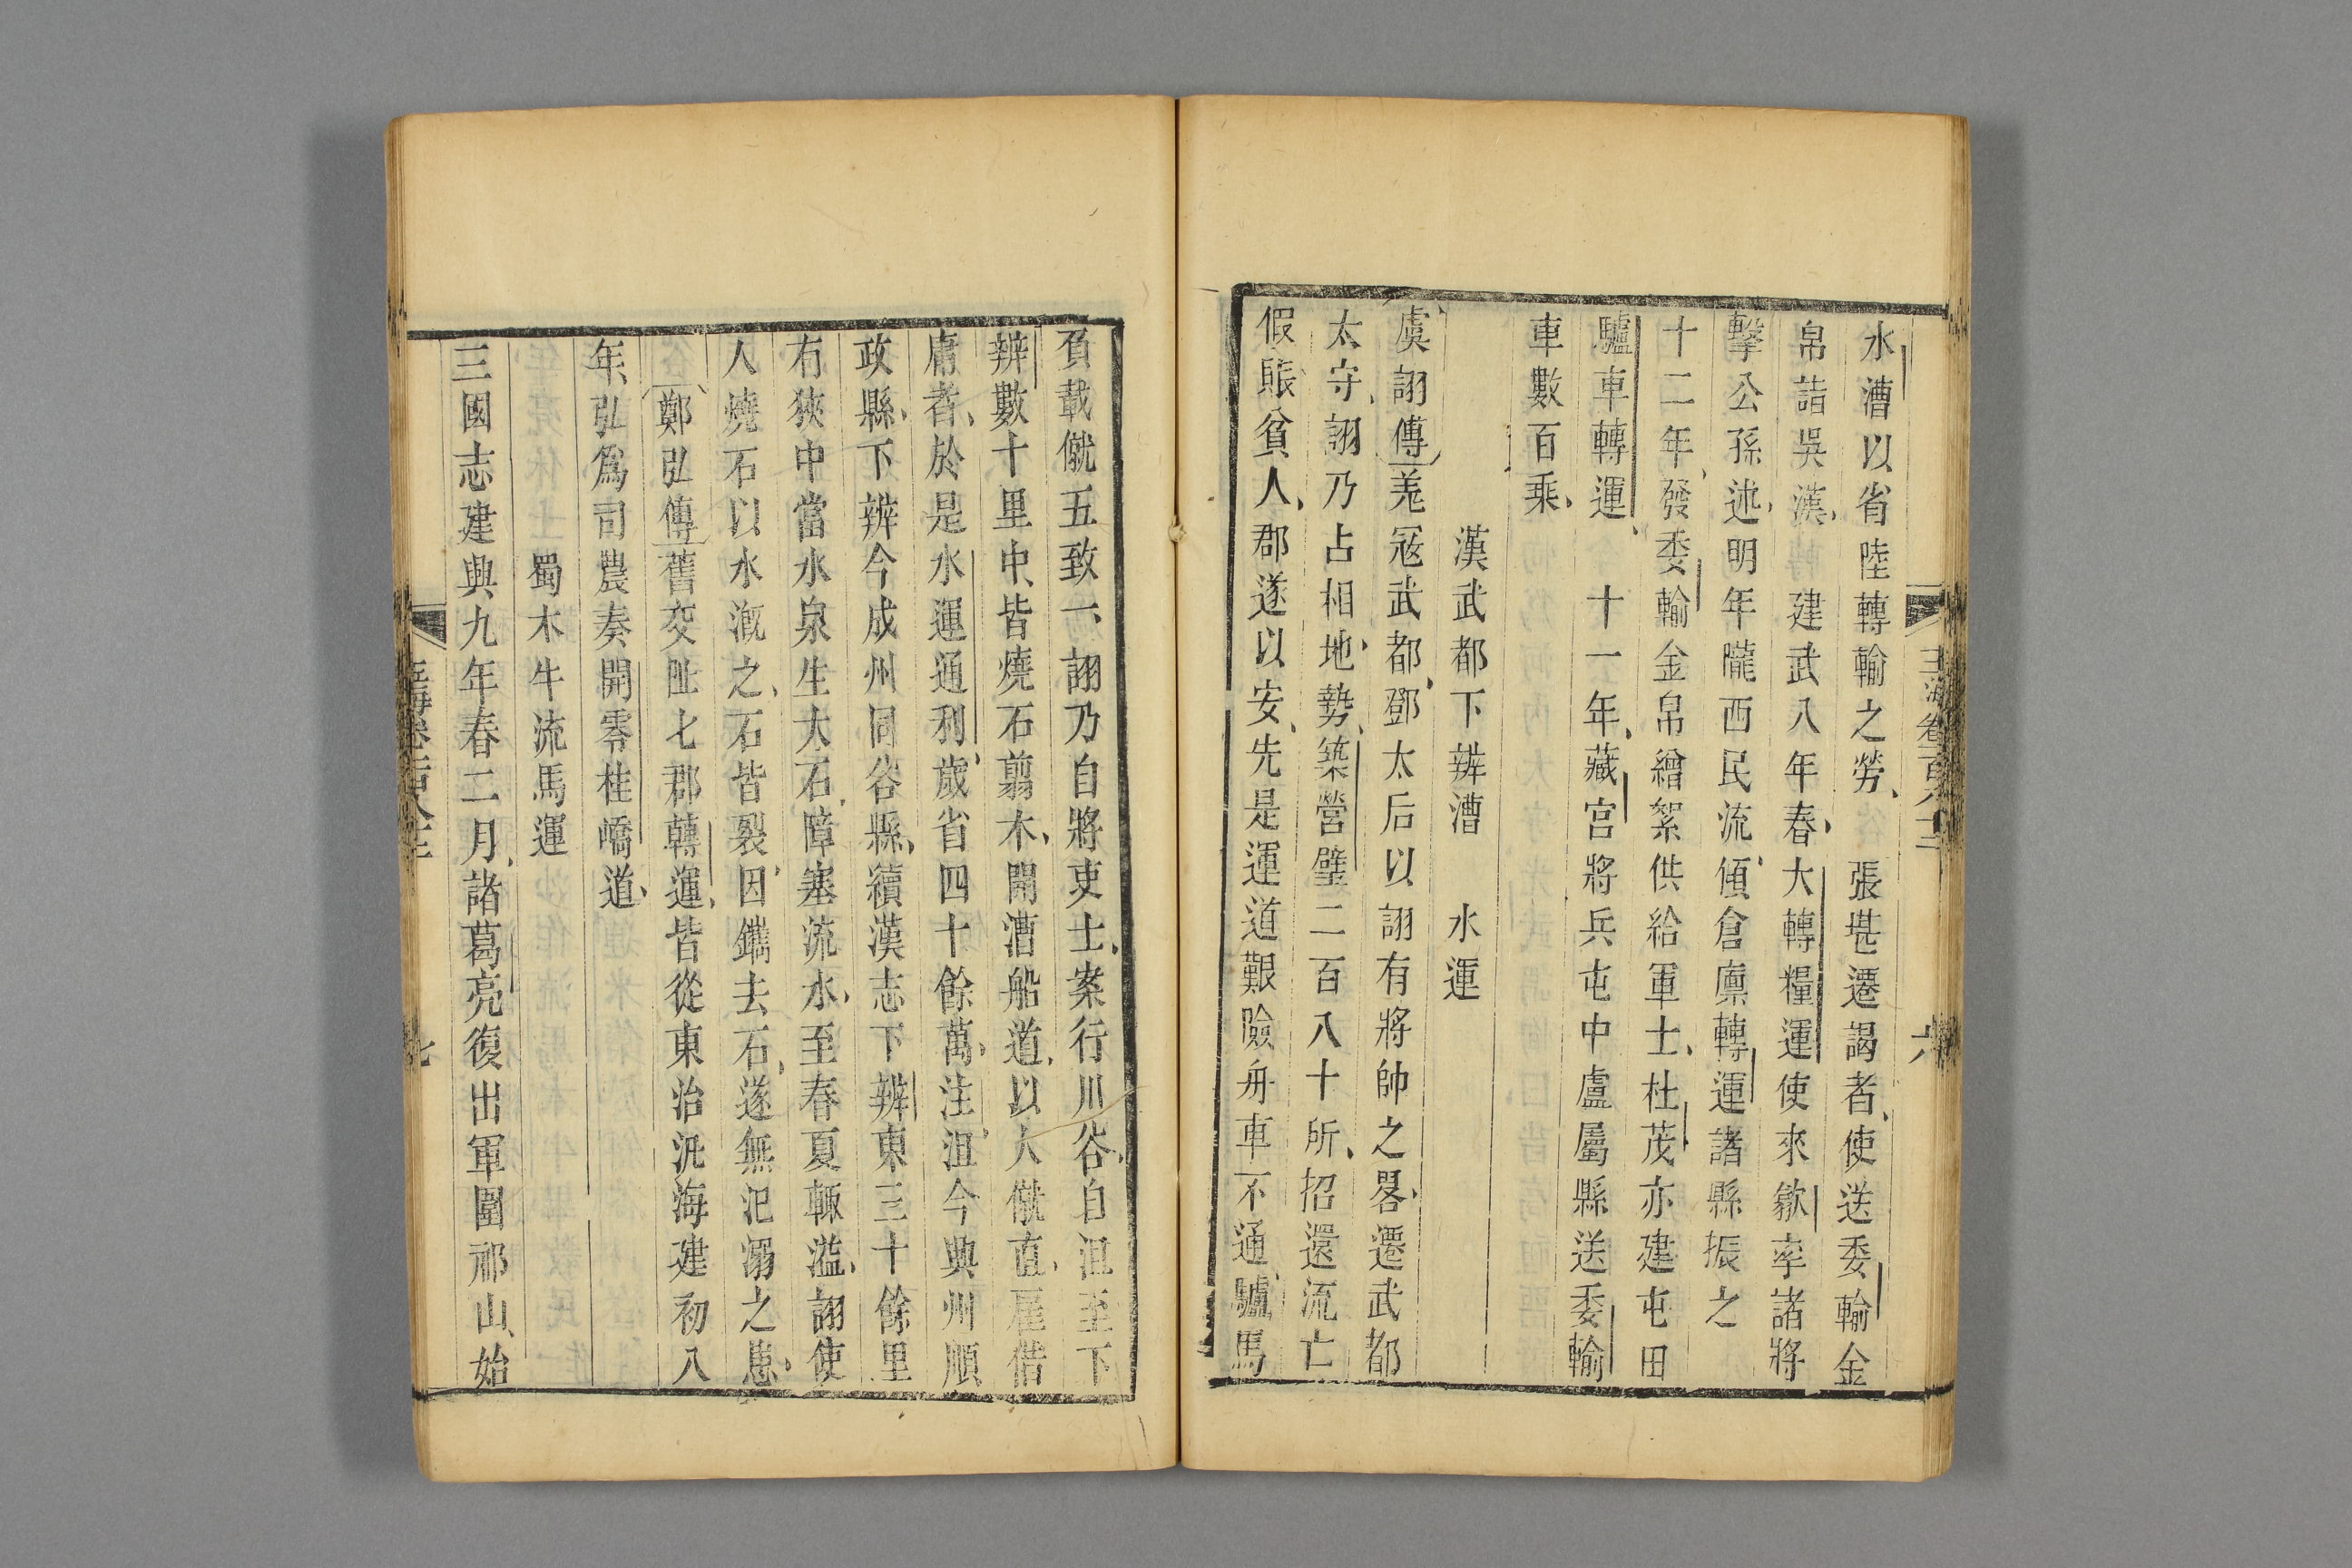 水漕以省陸轉輸之勞張堪遷謁者使送委輸金
帛詣吳漢建武八年春大轉糧運使來歙率諸將
擊公孫述明年隴西民流傾倉廩轉運諸縣振之
十二年發委輸金帛繒絮供給軍士杜茂亦建屯田
驢車轉運十一年藏宮將兵屯中盧屬縣送委輸
車數百乘
漢武都下辨漕水運
虞詡傳羌寇武都鄧太后以詡有將帥之畧遷武都
太守詡乃占相地勢築營壁二百八十所招還流亡
假賑貧人郡遂以安先是運道艱險舟車不通驢馬
負載僦五致一詡乃自將吏士案行川谷自沮至下
辨數十里中皆燒石翦木開漕船道以人僦直雇借
庸者於是水運通利歲省四十餘萬注沮今興州順
政縣下辨今成州同谷縣續漢志下辨東三十餘里
有狹中當水泉生大石障塞流水至春夏輒溢詡使
人燒石以水漑之石皆裂因鐫去石遂無汜溺之患
鄭弘傳舊交阯七郡轉運皆從東治汎海建初八
年弘爲司農奏開零桂嶠道
蜀木牛流馬運
三國志建興九年春二月諸葛亮復出軍圍祁山始
玉海卷一百八十二
六
七